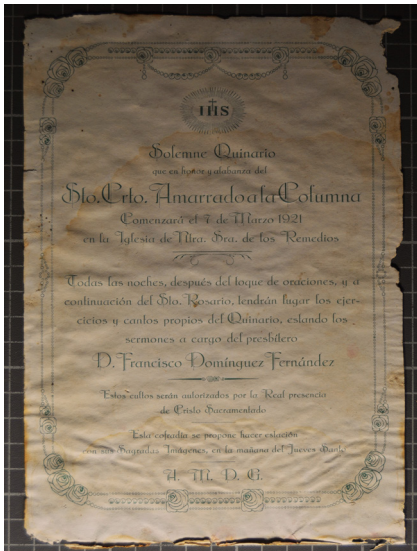 IHS
Solemne Quinario
que en honor y alabanza del
Sto. Crto. Amarrado a la Columna
Comenzará el 7 de Marzo 1921
en la Iglesia de Ntra. Sra. de los Remedios
Todas las noches, después del toque de oraciones, y a
continuación del Sto. Rosario, tendrán lugar los ejer-
cicios y cantos propios del Quinario, estando los
sermones a cargo del presbítero
D. Francisco Domínguez Fernández
Estos cultos serán autorizados por la Real presencia
de Cristo Sacramentado
Esta cofradía se propone hacer estación
con sus Sagradas Imágenes, en la mañana del Jueves Santo
A. M. D. G.